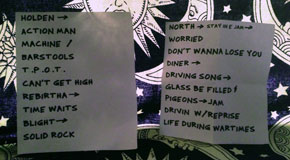 HOLDEN →
ACTION MAN
MACHINE /
BARSTOOLS
T.P.O.T.
CAN'T GET HIGH
REBIRTHA →
TIME WAITS
BLIGHT →
SOLID ROCK
NORTH → STAY ME JAM →
WORRIED
DON'T WANNA LOSE YOU
DINER →
DRIVING SONG →
GLASS BE FILLED!
PIGEONS → JAM
DRIVIN W/REPRISE
LIFE DURING WARTIMES